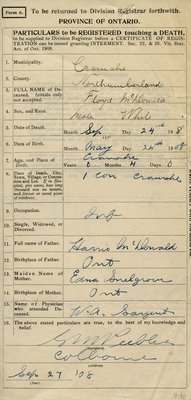 Form 6. To be returned to Division Registrar forthwith.
PROVINCE OF ONTARIO.
PARTICULARS to be REGISTERED touching a DEATH,
to be supplied to Division Registrar before a CERTIFICATE OF REGIS-
TRATION can be issued granting INTERMENT. Sec. 22, & 26 Vic. Stat.
Act of Ont. 1908.
1. Municipality. Cramahe
2. County. Northumberland
3. FULL NAME of De-
ceased. Initials only
not accepted. Floyd McDonald
4. Sex, and Race. Male White
5. Date of Death. Month Sep Day 24th 08
6. Date of Birth. Month May Day 24th 08
7. Age, and Place of
Birth. Cramahe
Y 0 M 4 D 0
8. Place of Death, City,
Town, Village, or Conces-
sion and Lot. 1 con Cramahe
9. Occupation.
10. Single, Widowed, or
Divorced.
11. Full name of Father. Harris McDonald
12. Birthplace of Father. Ont
13. Maiden Name of
Mother. Edna Snelgrove
14. Birthplace of Mother. Ont
15. Name of Physician
who attended De-
ceased. W.A. Sargent
16. The above stated particulars are true, to the best of my knowledge and
belief.
Peebles
Colborne
Sep 27 '08
(Date)